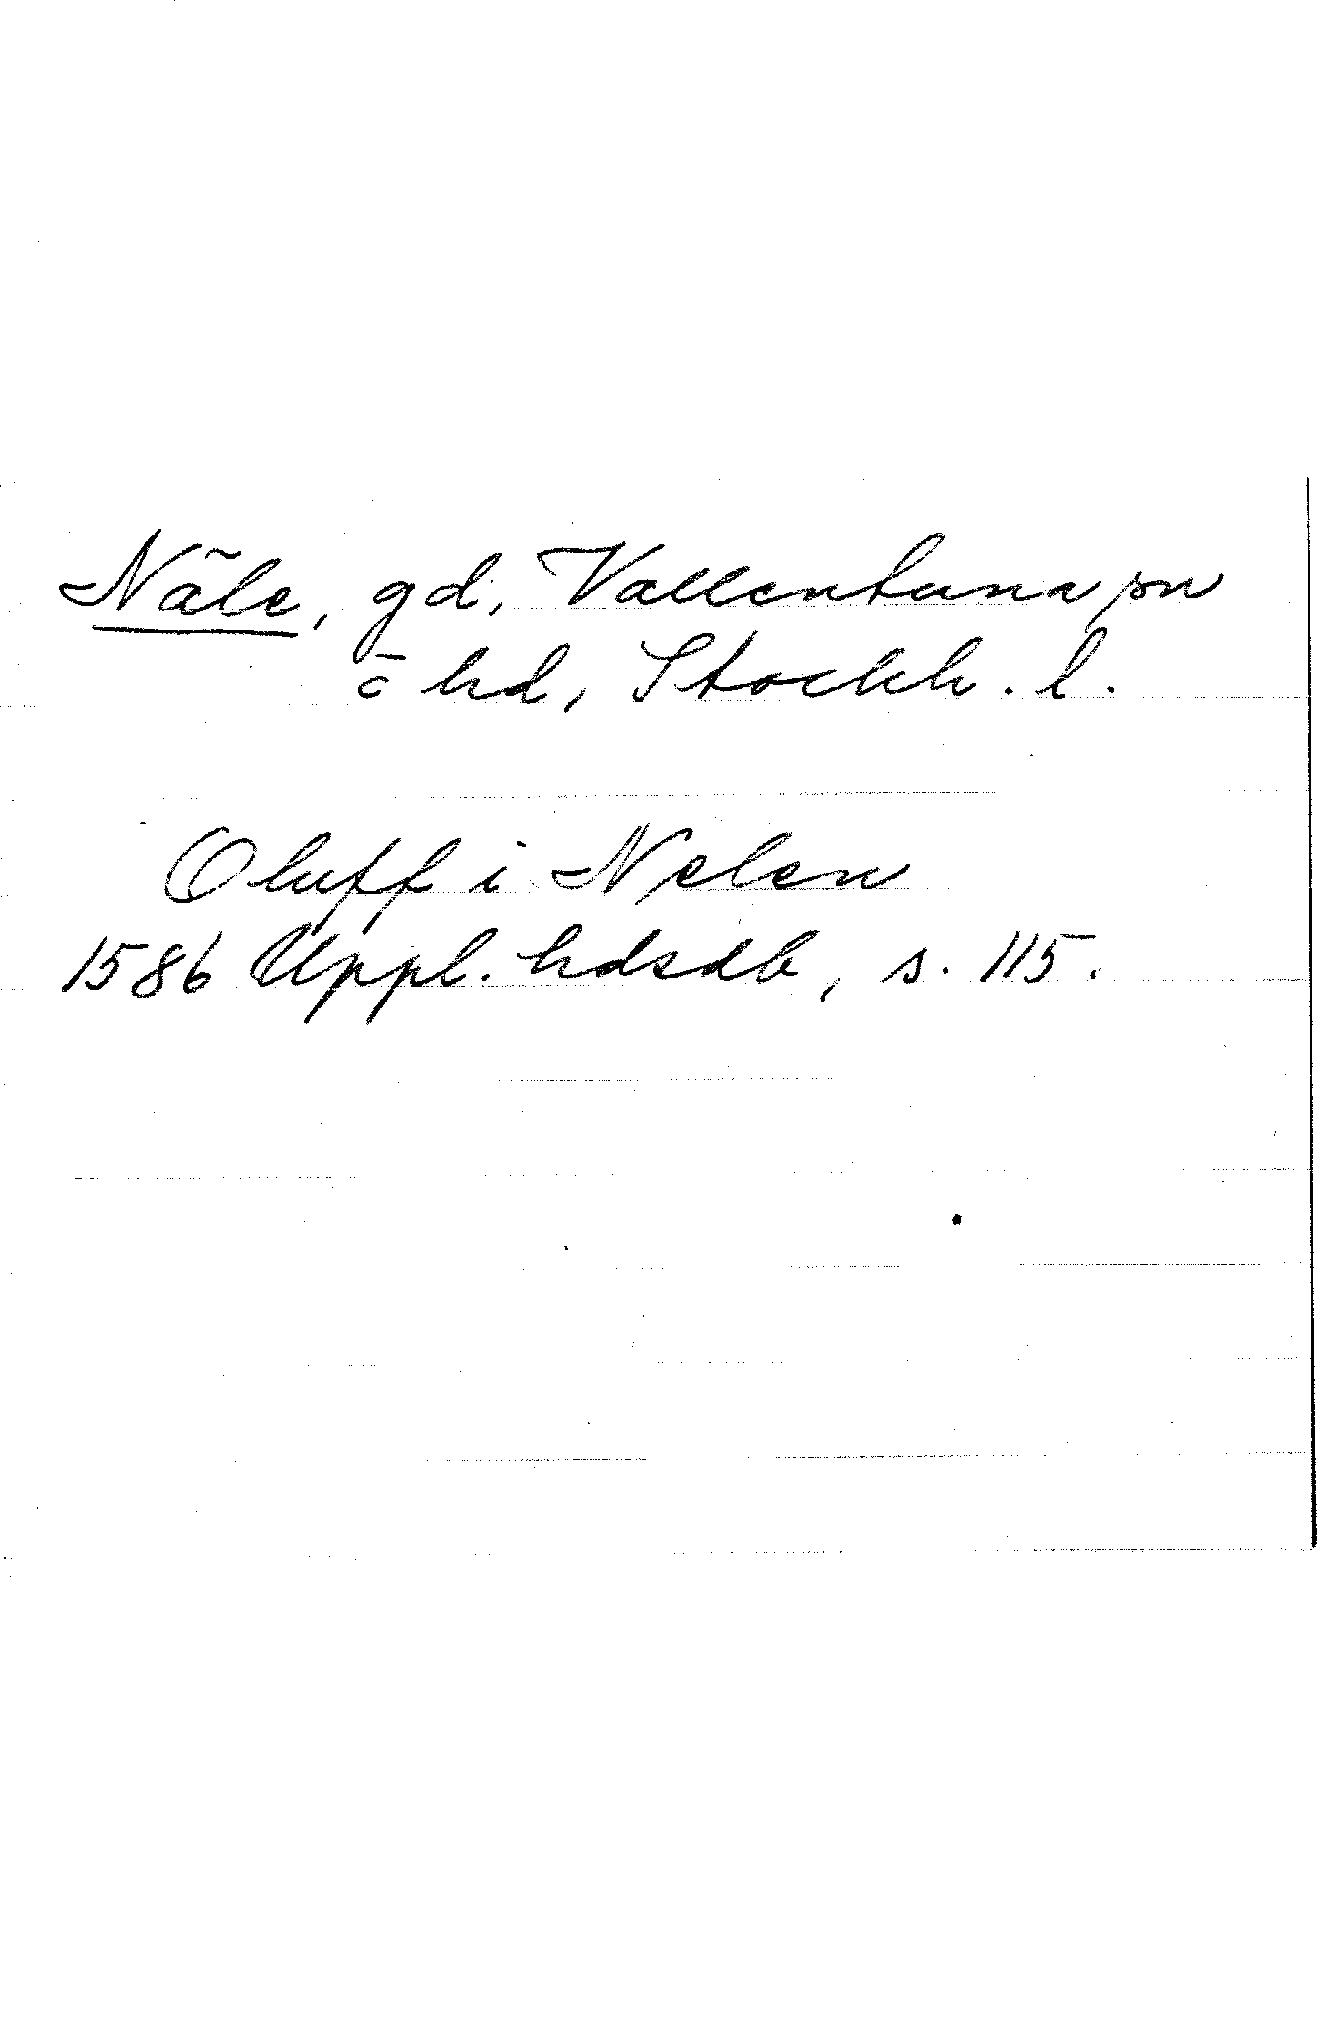 Näle, gd, Vallentuna sn
o hd, Stockh. l.
Oluff i Nelen
1586 Uppl. hdsdb, s. 115.